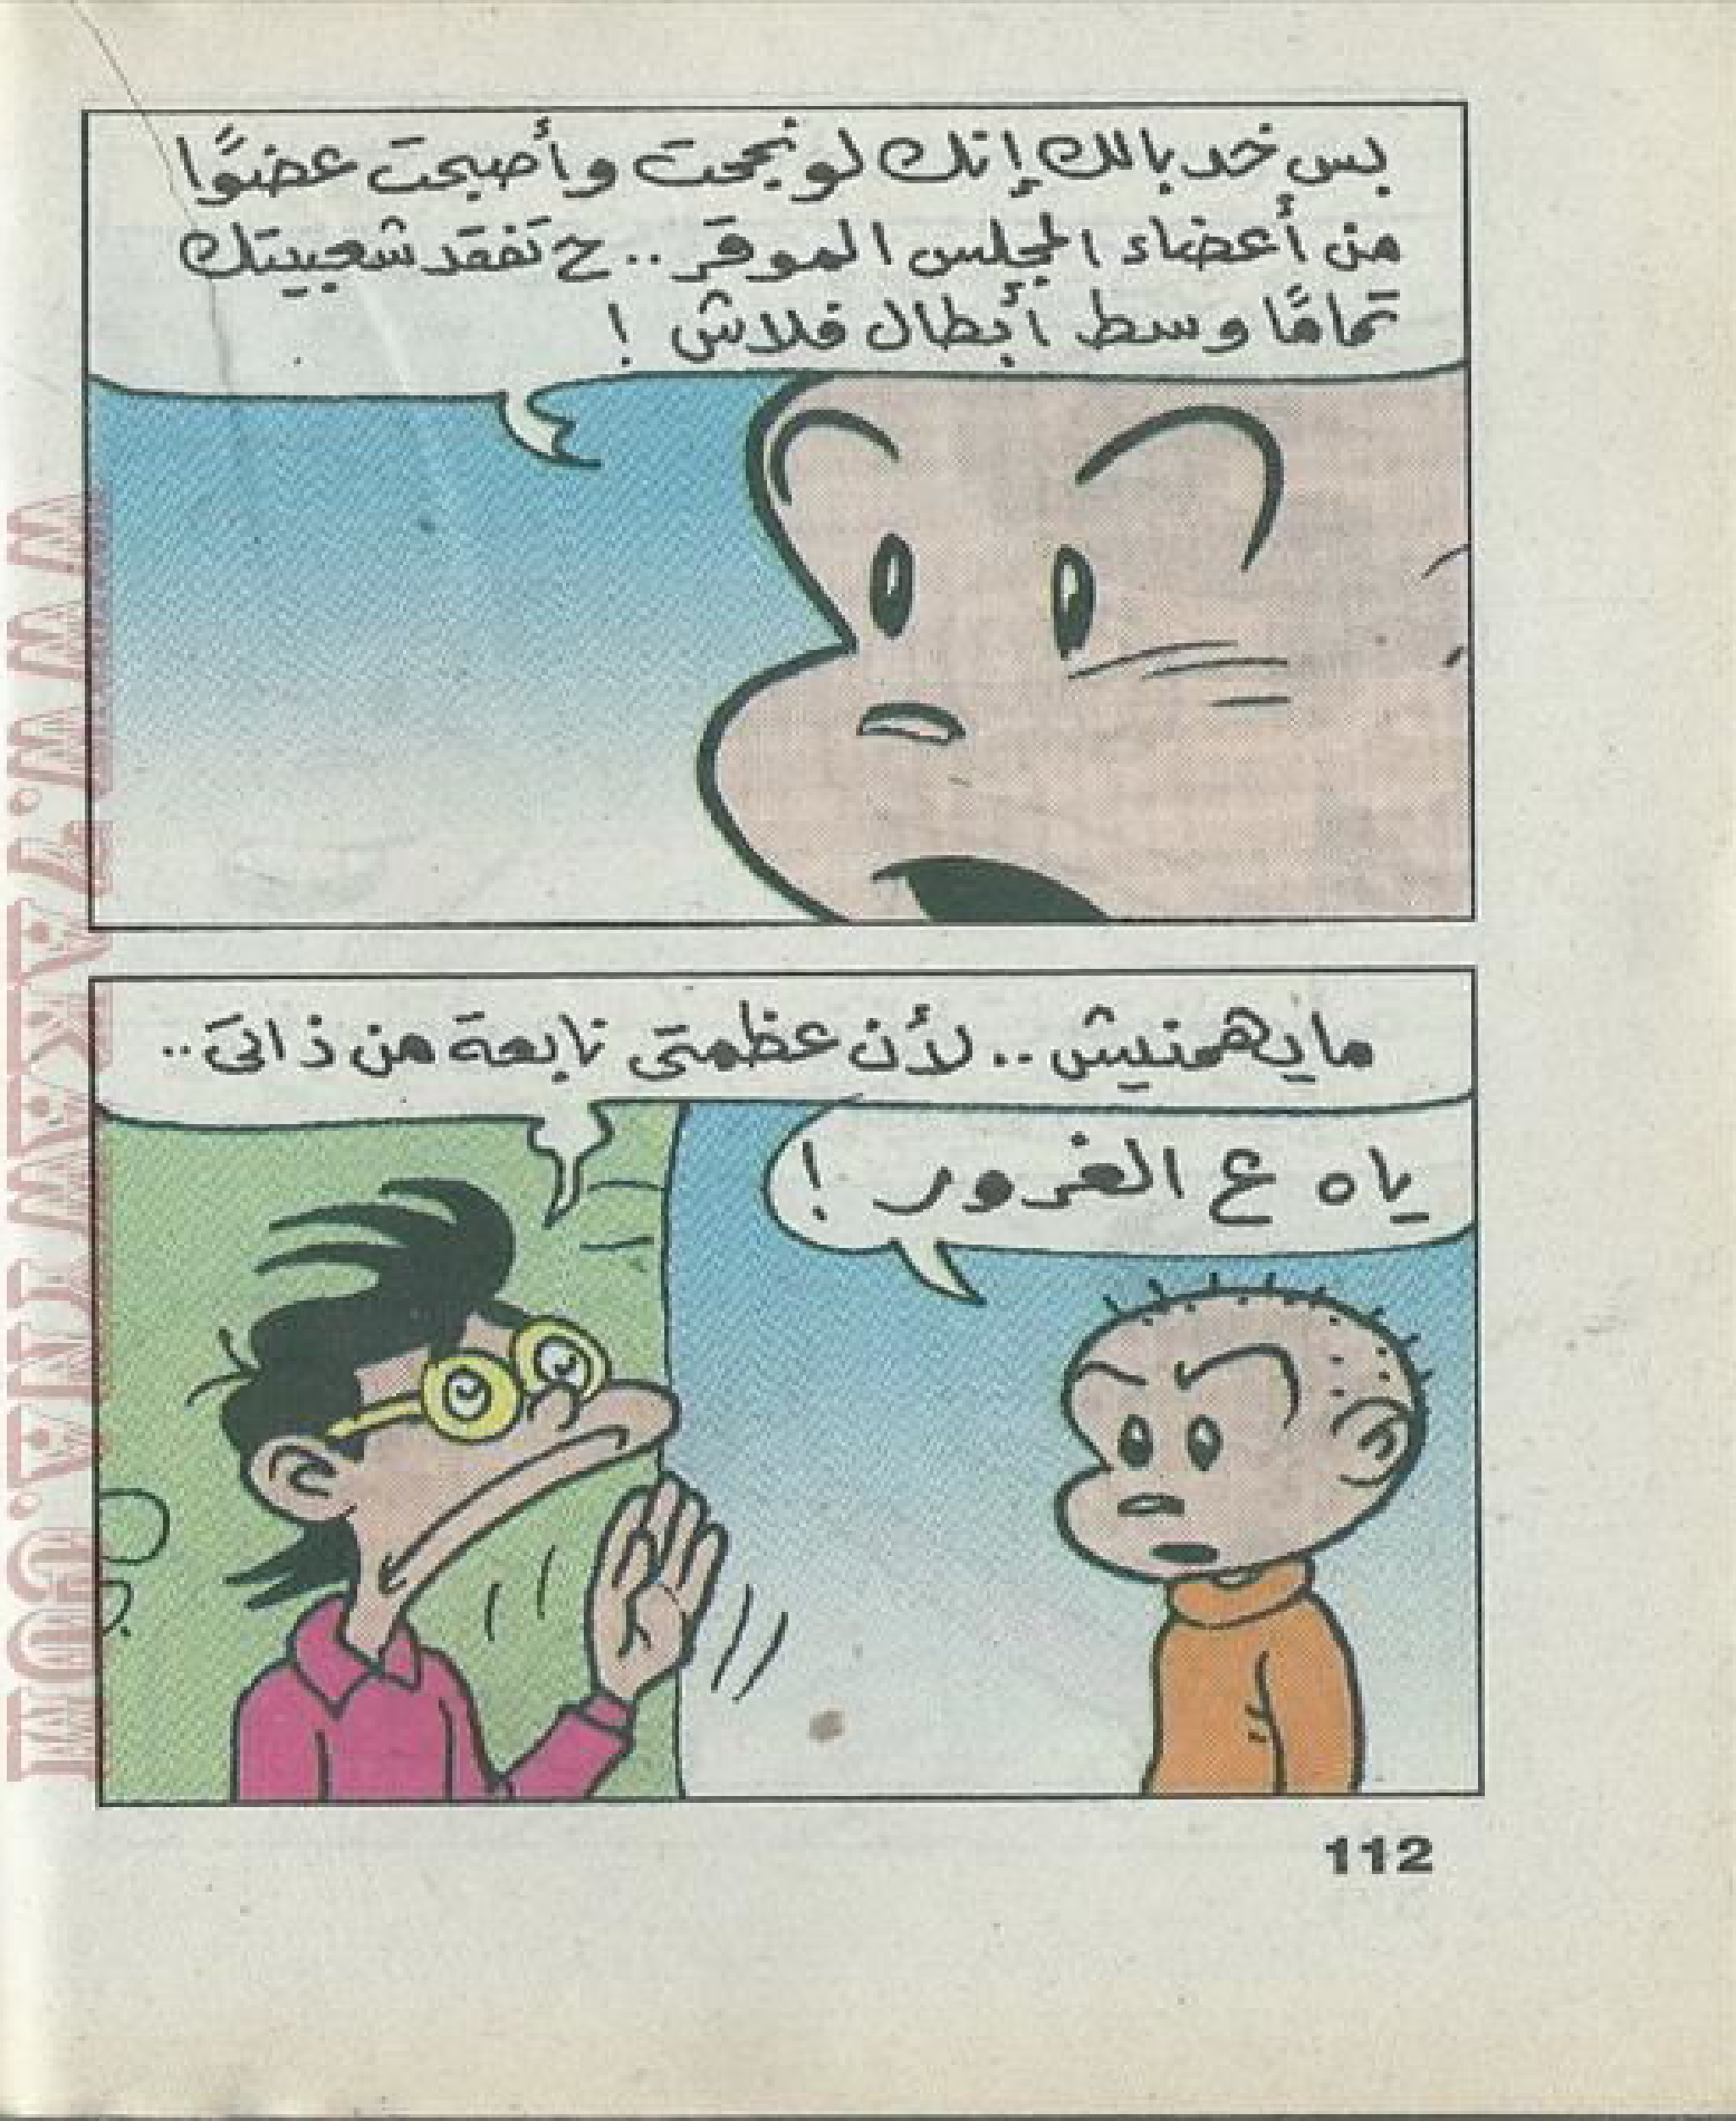 بس خد بالك إنك لو نجحت وأصبحت عضوًا
من أعضاء المجلس الموقر .. ح تفقد شعبيتك
تمامًا وسط أبطال فلاش !
ما يهمنيش .. لأن عظمتى نابعة من ذاتى ..
ياه ع الغرور !
112
WWW.7AKAWYNA.COM